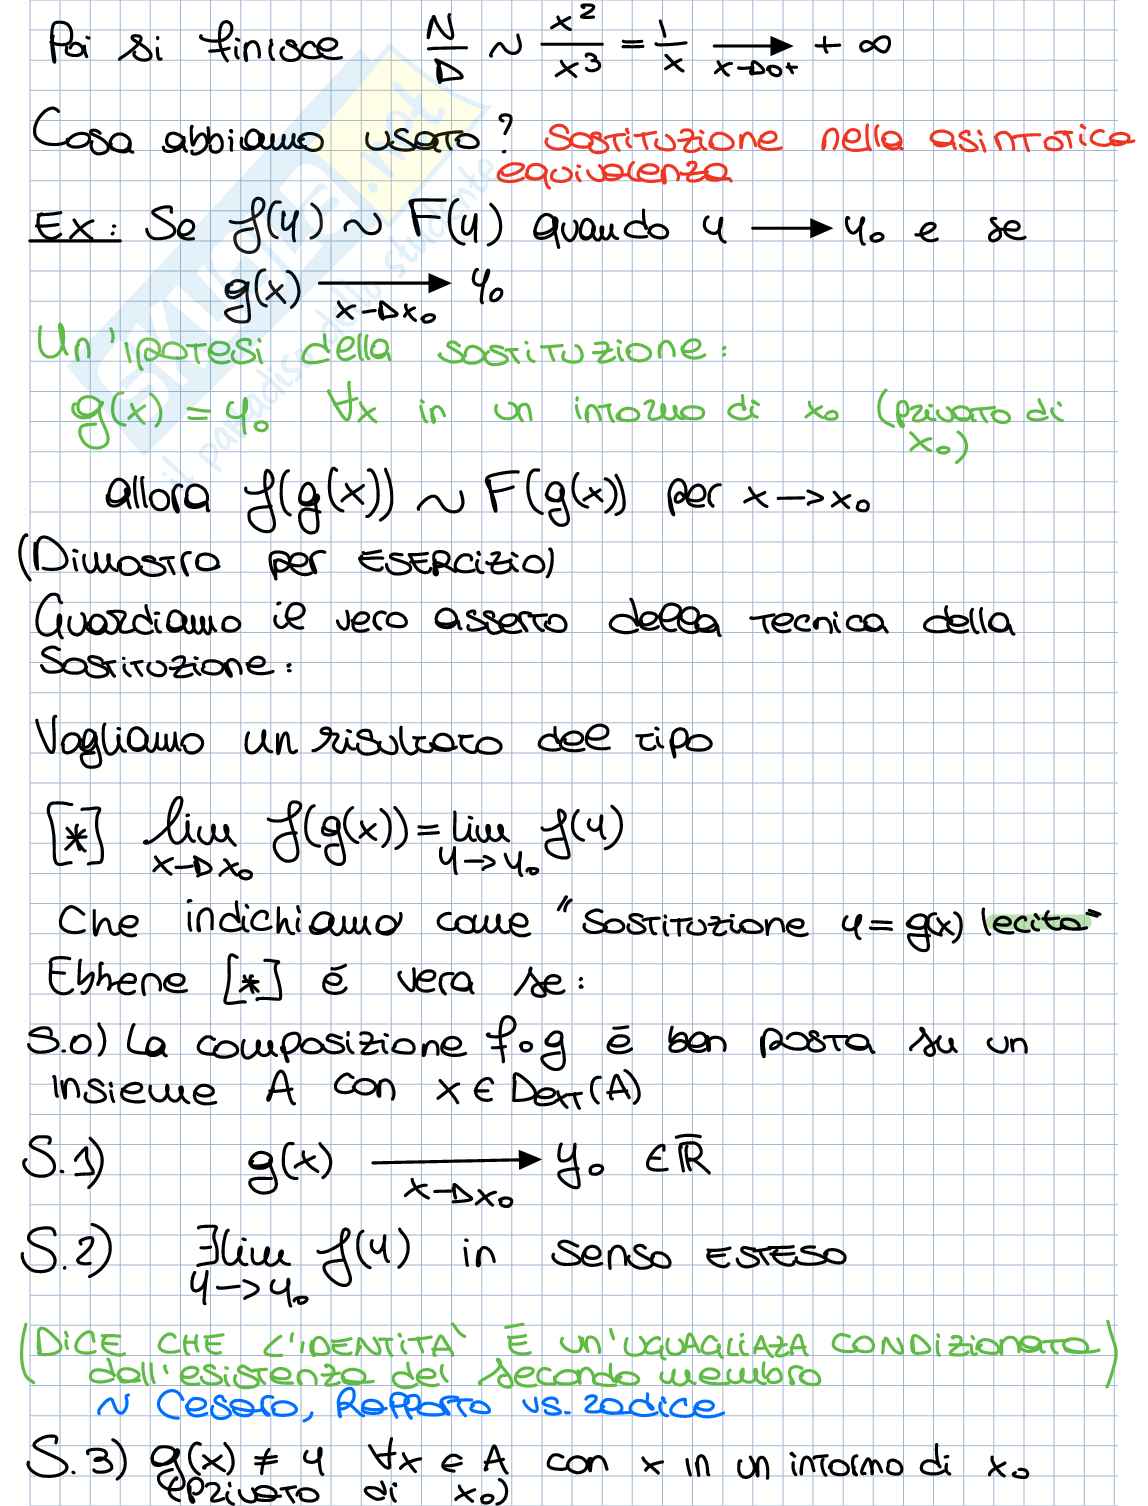 Poi si finisce N/D ~ x²/x³ = 1/x ⟶ x→0+ + ∞
Cosa abbiamo usato? Sostituzione nella asintotica
equivalenza
Ex: Se f(y) ~ F(y) quando y ⟶ y₀ e se
g(x) ⟶ x→x₀ y₀
Un'ipotesi della sostituzione:
g(x) = y₀ ∀x in un intorno di x₀ (privato di
x₀)
allora f(g(x)) ~ F(g(x)) per x → x₀
(Dimostra per ESERCIZIO)
Guardiamo il vero asserto della tecnica della
Sostituzione:
Vogliamo un risultato del tipo
[*] lim x→x₀ f(g(x)) = lim y→y₀ f(y)
Che indichiamo come "Sostituzione y = g(x) lecita"
Ebbene [*] é vera se:
S.0) La composizione f∘g è ben posta su un
insieme A con x ∈ Dext(A)
S.1) g(x) ⟶ x→x₀ y₀ ∈ R̅
S.2) ∃lim y→y₀ f(y) in senso ESTESO
(DICE CHE L'IDENTITA' È UN'UGUAGLIAZA CONDIZIONATA
dall'esistenza del secondo membro)
~ Cesaro, Rapporto vs. radice
S.3) g(x) ≠ y ∀x ∈ A con x in un intorno di x₀
(privato di x₀)
SKUOLA.net
il paradiso dello studente